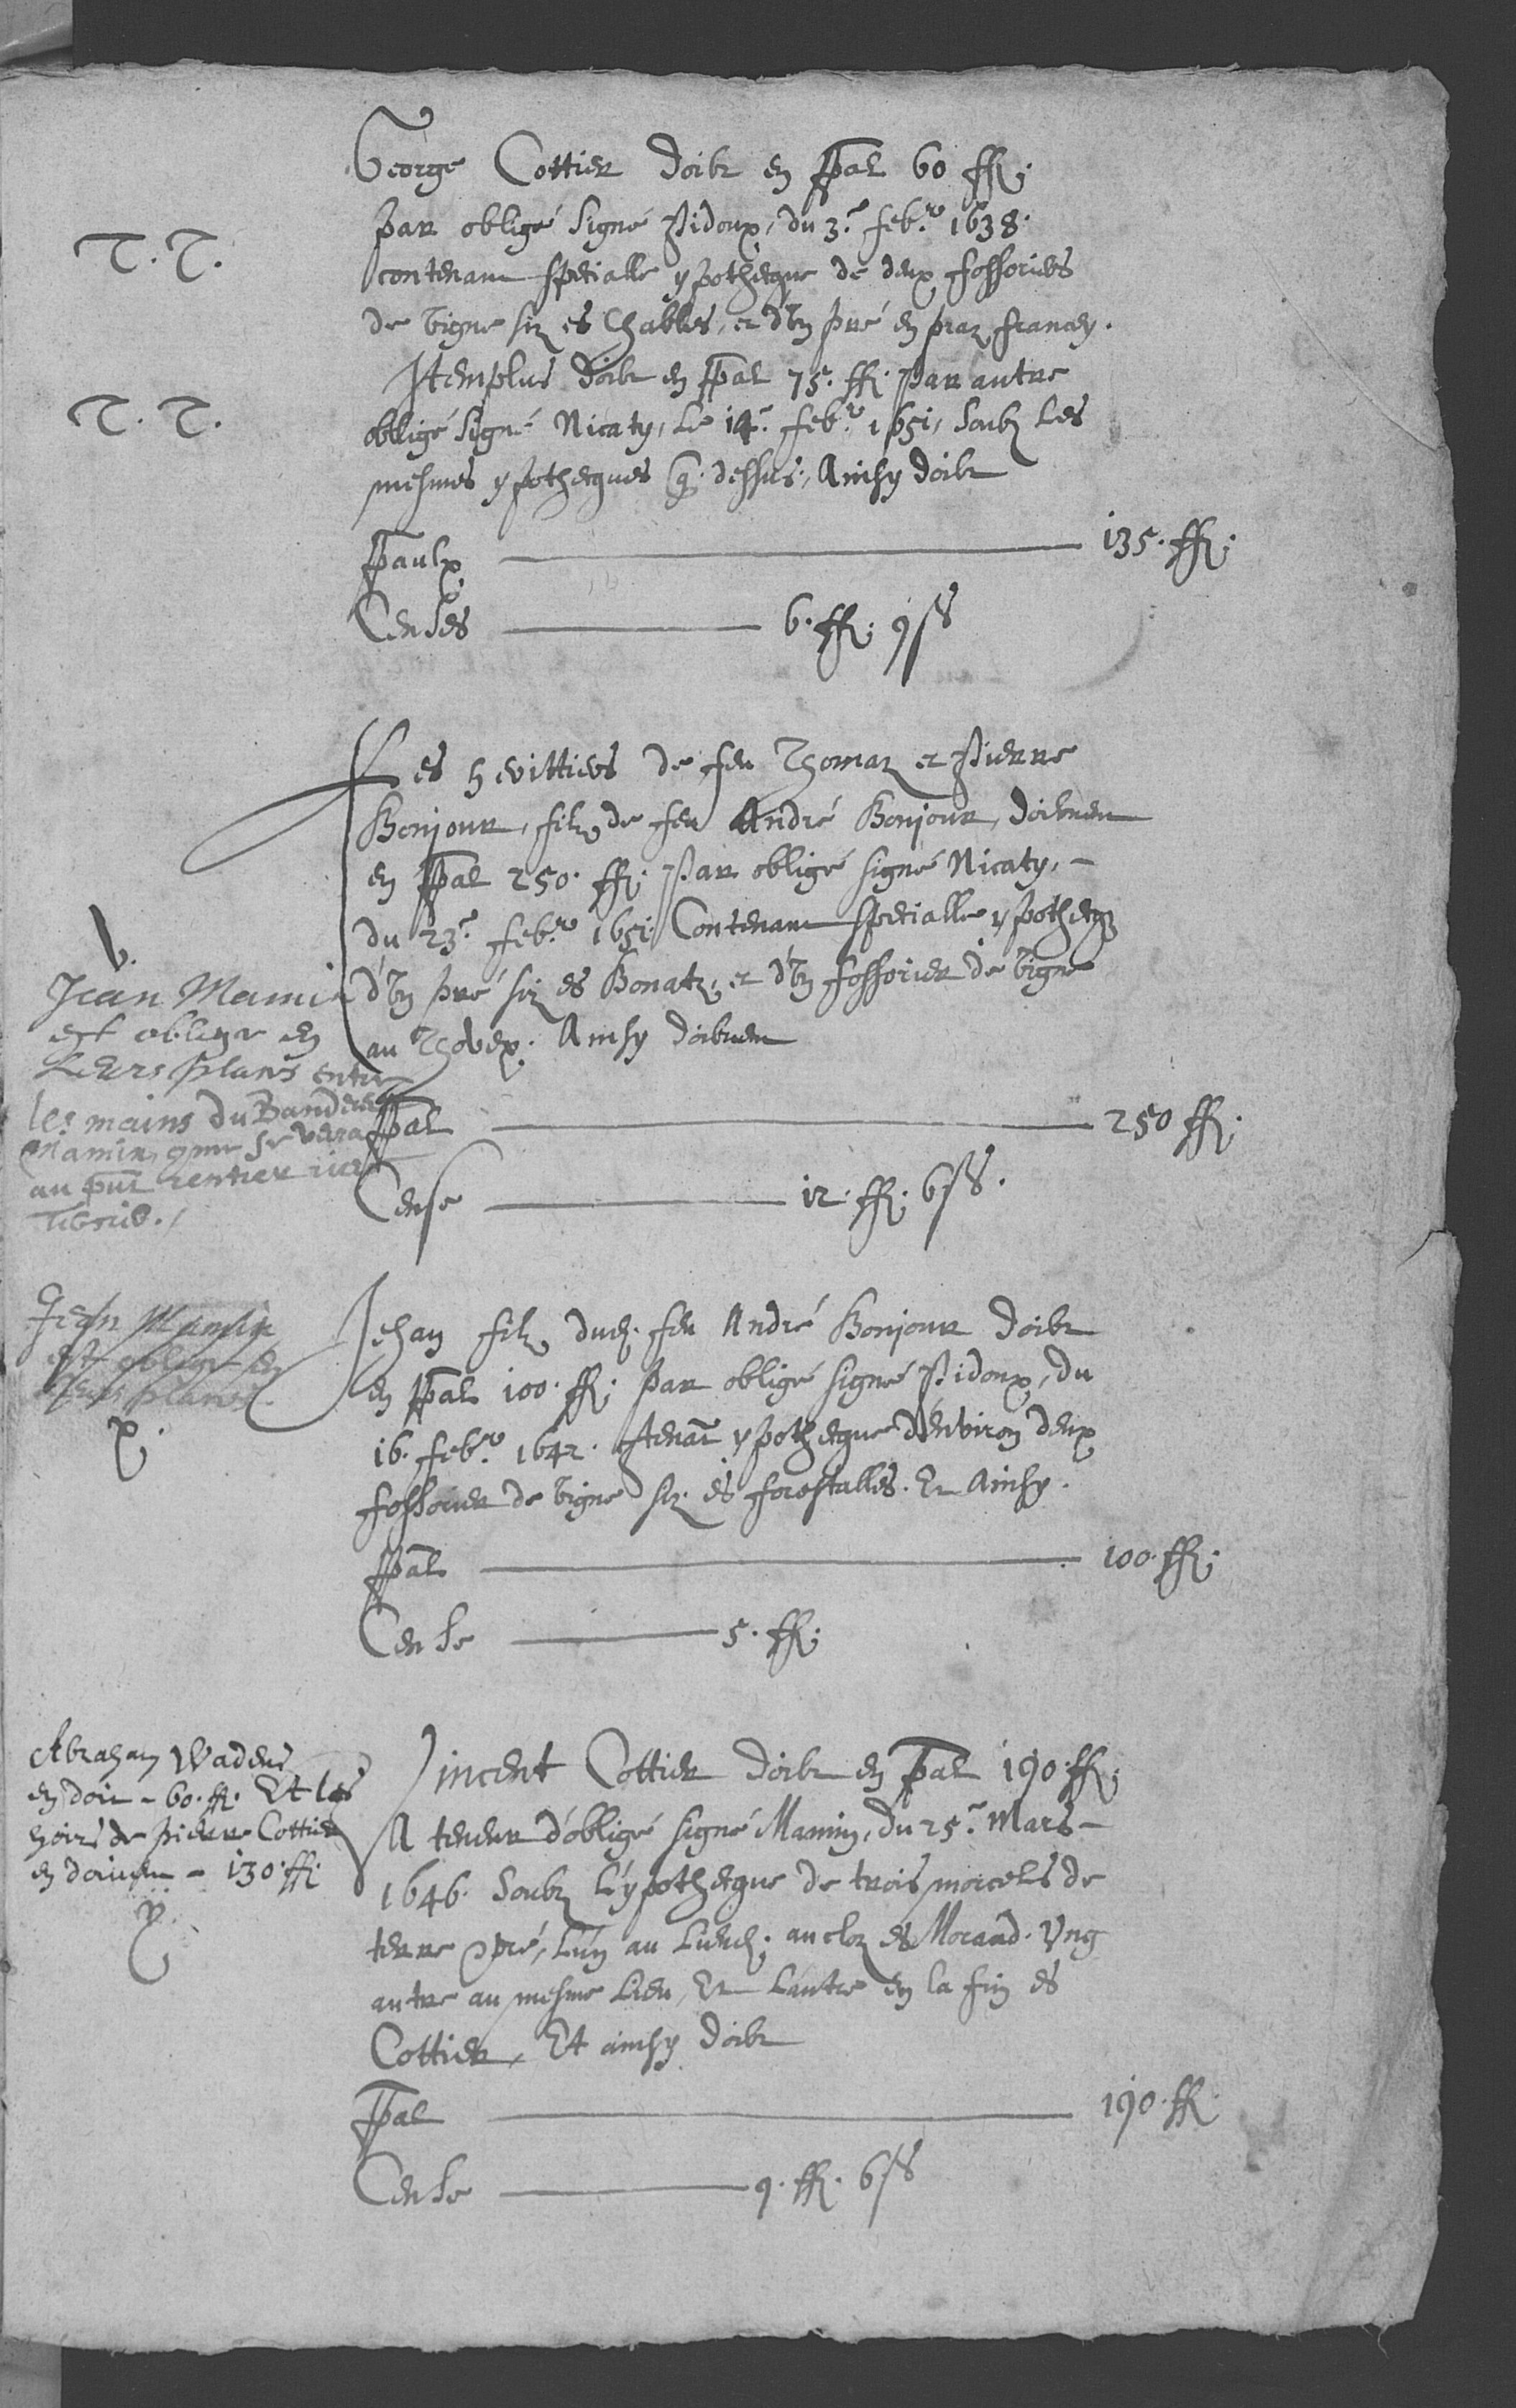 George Cottier doibt en ppal 60 ff;
par obligé signé Pidoux, du 3.e feb.r 1638.
T. T.
contenant specialle ypotheque de deux fossoriers
de vigne siz es Chables, et d'vn pré en praz francey.
Itemplus doibt en ppal 75. ff. par autre
T. T.
obligé signé Nicaty, le 14.e feb.r 1651, soubz les
mesmes ypotheques q. dessus, Ainsy doibt
ppaulx ——— 135. ff;
Censes ——— 6. ff; 9 ss
Les herittiers de feu Thomaz et Pierre
Bonjour, filz de feu André Bonjour, doibuent
en ppal 250. ff; par obligé signé Nicaty, -
du 23.e feb.r 1651. Contenant specialle ypotheq
d'vn pré siz es Bonatz, et d'vn fossorier de vigne
au Thovex. Ainsy doibuent
V.
Jean Mamin
est obligé en
Leurs plans entre
les mains du Banderet
Mamin, come se verra
au pnt rentier icy
ppal ——— 250 ff;
Cense ——— 12. ff. 6 ss.
Jean Mamin
est obligé en
leurs plans.
Jehan filz dud. feu André Bonjour doibt
en ppal 100. ff; par obligé signé Pidoux, du
16. feb.r 1642. ctenãt ypotheque d'enviroñ deux
fossorier de vigne siz. es forestalles. Et Ainsy.
ppal ——— 100. ff;
Cense ——— 5. ff;
Abraham Wadens
en doit - 60. ff. Et les
hoirs de Pierre Cottier
en doiuent - 130. ff;
Vincent Cottier doibt en ppal 190. ff;
A teneur d'obligé signé Mamin, du 25.e Mars -
1646. Soubz l'ypotheque de trois morcels de
terre pré, l'un au Lieud; au cloz es Morand. Vng
autre au mesme Lieu, Et L'autre en la fin es
Cottier, Et ainsy doibt
ppal ——— 190. ff
Cense ——— 9. ff. 6 ss